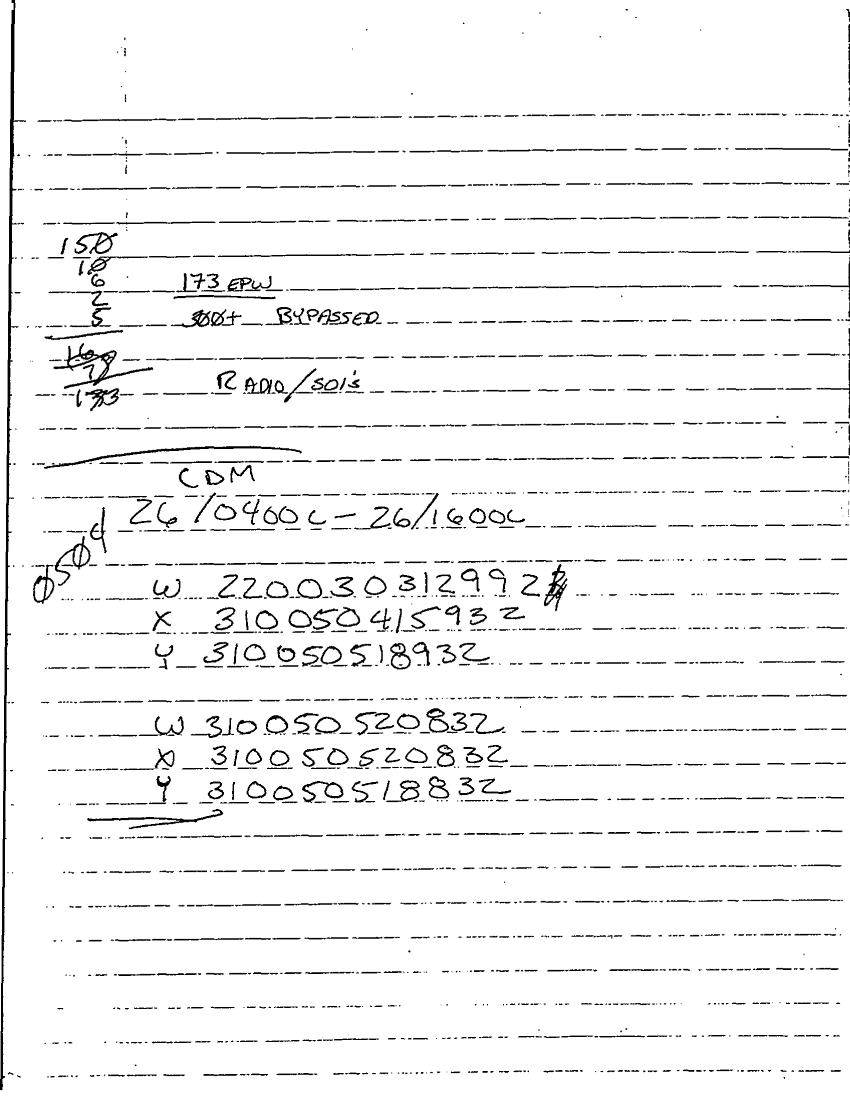 150
10
6 173 EPW
2
5 300+ BYPASSED
173
RADIO/SOI's
CDM
26/0400C - 26/1600C
0504
W 220030312992
X 310050415932
Y 310050518932
W 310050520832
X 310050520832
Y 310050518832